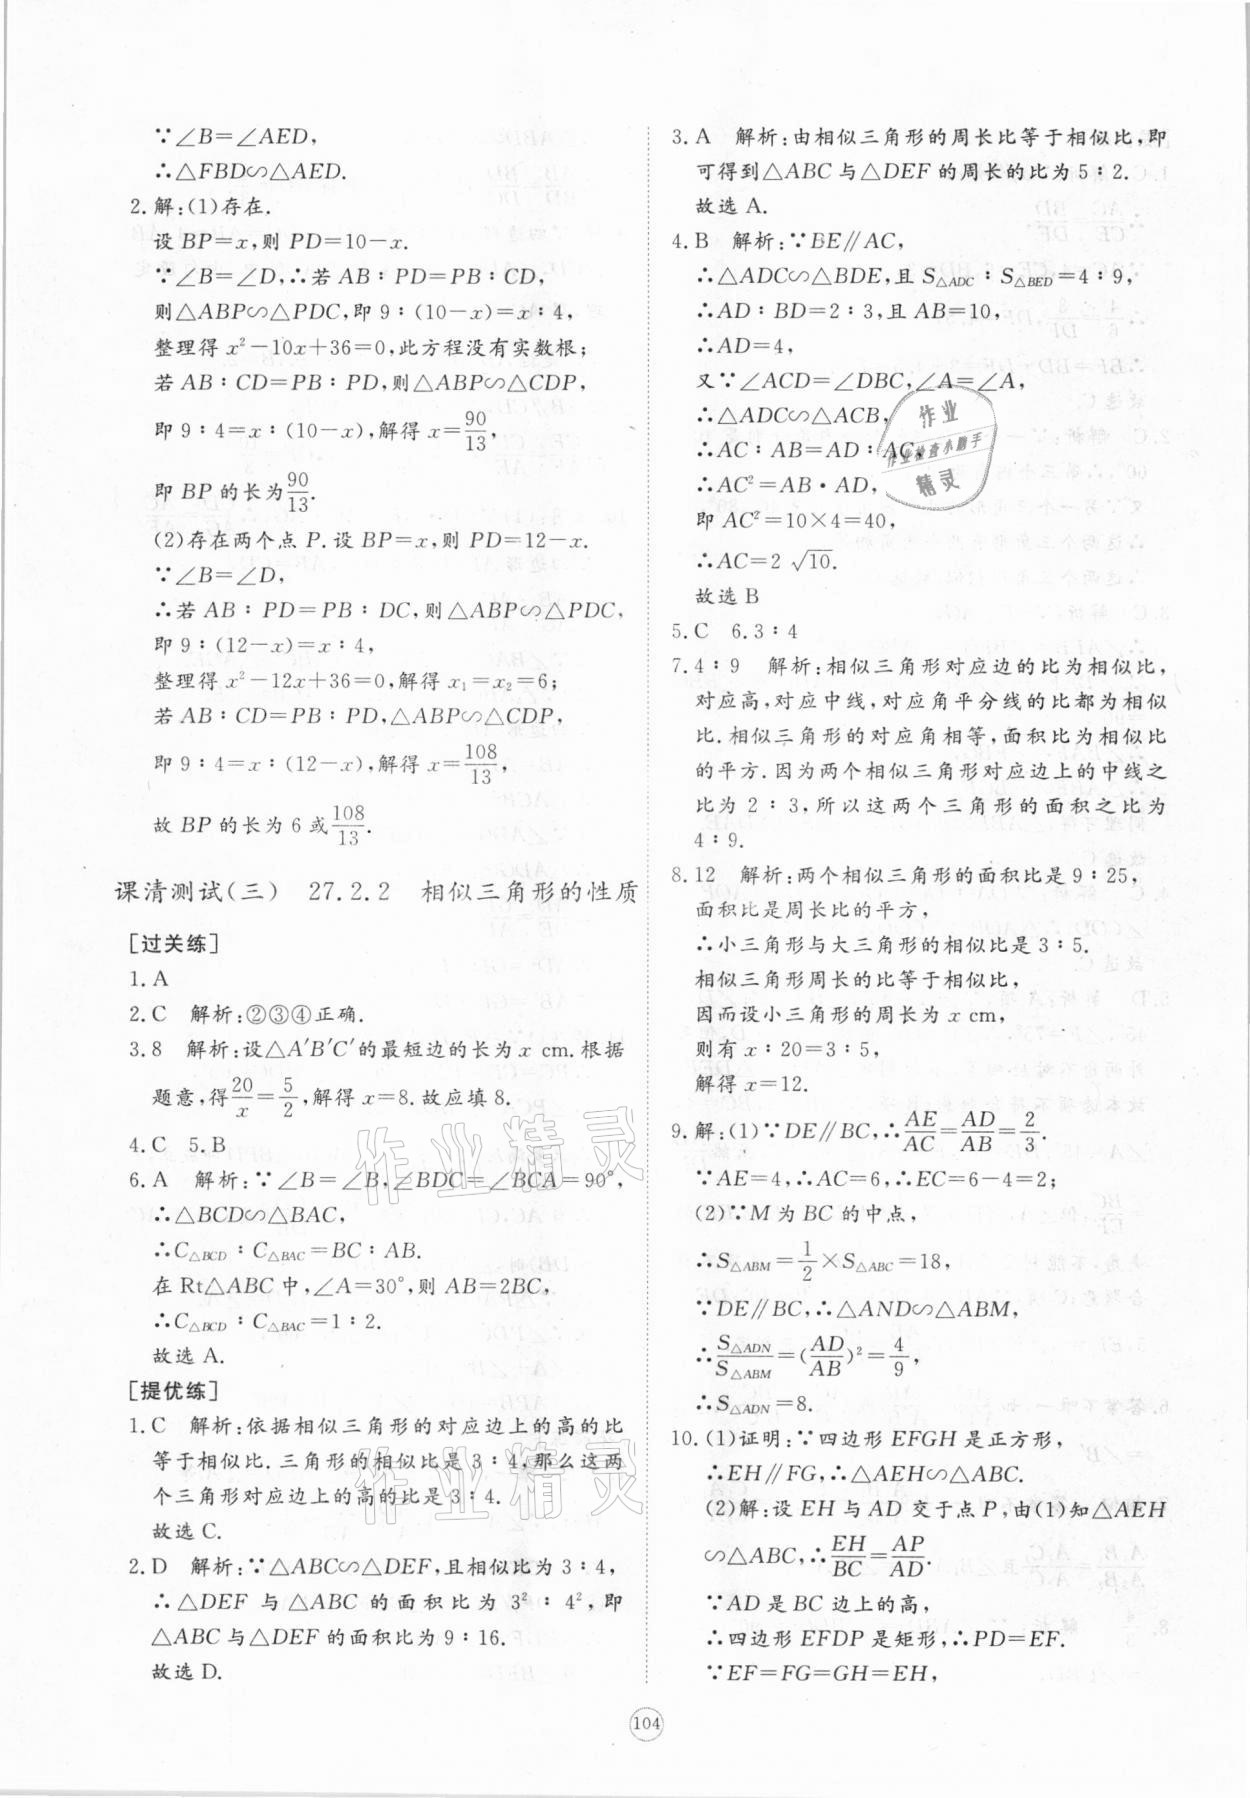 ∵∠B=∠AED,
∴△FBD∽△AED.
2.解:(1)存在.
设 BP=x,则 PD=10-x.
∵∠B=∠D,∴若 AB∶PD=PB∶CD,
则△ABP∽△PDC,即 9∶(10-x)=x∶4,
整理得 x²-10x+36=0,此方程没有实数根;
若 AB∶CD=PB∶PD,则△ABP∽△CDP,
即 9∶4=x∶(10-x),解得 x=90/13,
即 BP 的长为90/13.
(2)存在两个点 P.设 BP=x,则 PD=12-x.
∵∠B=∠D,
∴若 AB∶PD=PB∶DC,则△ABP∽△PDC,
即 9∶(12-x)=x∶4,
整理得 x²-12x+36=0,解得 x₁=x₂=6;
若 AB∶CD=PB∶PD,△ABP∽△CDP,
即 9∶4=x∶(12-x),解得 x=108/13,
故 BP 的长为 6 或108/13.
课清测试(三) 27.2.2 相似三角形的性质
[过关练]
1.A
2.C 解析:②③④正确.
3.8 解析:设△A′B′C′的最短边的长为 x cm.根据
题意,得20/x=5/2,解得 x=8.故应填 8.
4.C 5.B
6.A 解析:∵∠B=∠B,∠BDC=∠BCA=90°,
∴△BCD∽△BAC,
∴C△BCD∶C△BAC=BC∶AB.
在 Rt△ABC 中,∠A=30°,则 AB=2BC,
∴C△BCD∶C△BAC=1∶2.
故选 A.
[提优练]
1.C 解析:依据相似三角形的对应边上的高的比
等于相似比.三角形的相似比是 3∶4,那么这两
个三角形对应边上的高的比是 3∶4.
故选 C.
2.D 解析:∵△ABC∽△DEF,且相似比为 3∶4,
∴△DEF 与△ABC 的面积比为 3²∶4²,即
△ABC 与△DEF 的面积比为 9∶16.
故选 D.
3.A 解析:由相似三角形的周长比等于相似比,即
可得到△ABC 与△DEF 的周长的比为 5∶2.
故选 A.
4.B 解析:∵BE∥AC,
∴△ADC∽△BDE,且 S△ADC∶S△BED=4∶9,
∴AD∶BD=2∶3,且 AB=10,
∴AD=4,
又∵∠ACD=∠DBC,∠A=∠A,
∴△ADC∽△ACB,
∴AC∶AB=AD∶AC,
∴AC²=AB·AD,
即 AC²=10×4=40,
∴AC=2√10.
故选 B
5.C 6.3∶4
7.4∶9 解析:相似三角形对应边的比为相似比,
对应高,对应中线,对应角平分线的比都为相似
比.相似三角形的对应角相等,面积比为相似比
的平方.因为两个相似三角形对应边上的中线之
比为 2∶3,所以这两个三角形的面积之比为
4∶9.
8.12 解析:两个相似三角形的面积比是 9∶25,
面积比是周长比的平方,
∴小三角形与大三角形的相似比是 3∶5.
相似三角形周长的比等于相似比,
因而设小三角形的周长为 x cm,
则有 x∶20=3∶5,
解得 x=12.
9.解:(1)∵DE∥BC,∴AE/AC=AD/AB=2/3.
∵AE=4,∴AC=6,∴EC=6-4=2;
(2)∵M 为 BC 的中点,
∴S△ABM=1/2×S△ABC=18,
∵DE∥BC,∴△AND∽△ABM,
∴S△ADN/S△ABM=(AD/AB)²=4/9,
∴S△ADN=8.
10.(1)证明:∵四边形 EFGH 是正方形,
∴EH∥FG,∴△AEH∽△ABC.
(2)解:设 EH 与 AD 交于点 P,由(1)知△AEH
∽△ABC,∴EH/BC=AP/AD.
∵AD 是 BC 边上的高,
∴四边形 EFDP 是矩形,∴PD=EF.
∵EF=FG=GH=EH,
104
作业
作业检查小助手
精灵
作业精灵
作业精灵